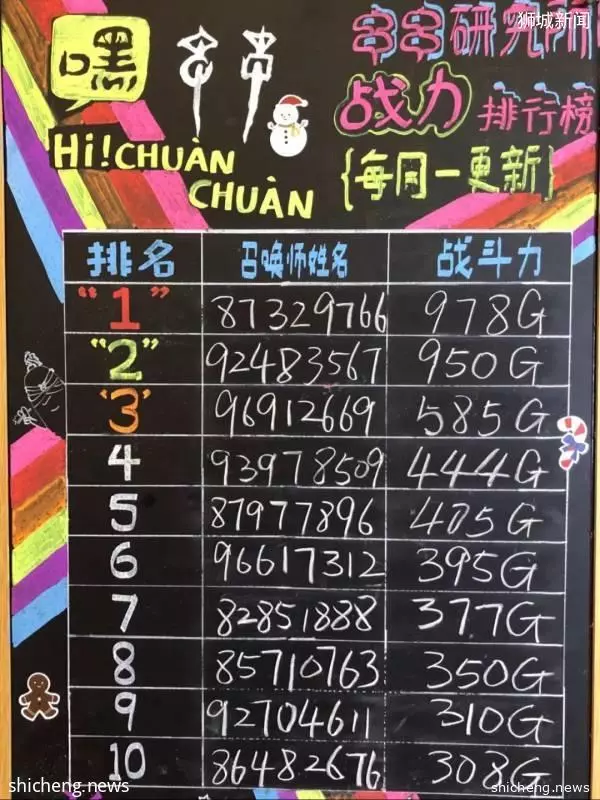 狮城新闻
嘿 串串
Hi!CHUÀN
CHUÀN
串串研究所
战力排行榜
{每周一更新}
排名 召唤师姓名 战斗力
“1” 87329766 978G
“2” 92483567 950G
‘3’ 96912669 585G
4 93978509 444G
5 87977896 405G
6 96617312 395G
7 82851888 377G
8 85710763 350G
9 92704611 310G
10 86482676 308G
shicheng.news
shicheng.news